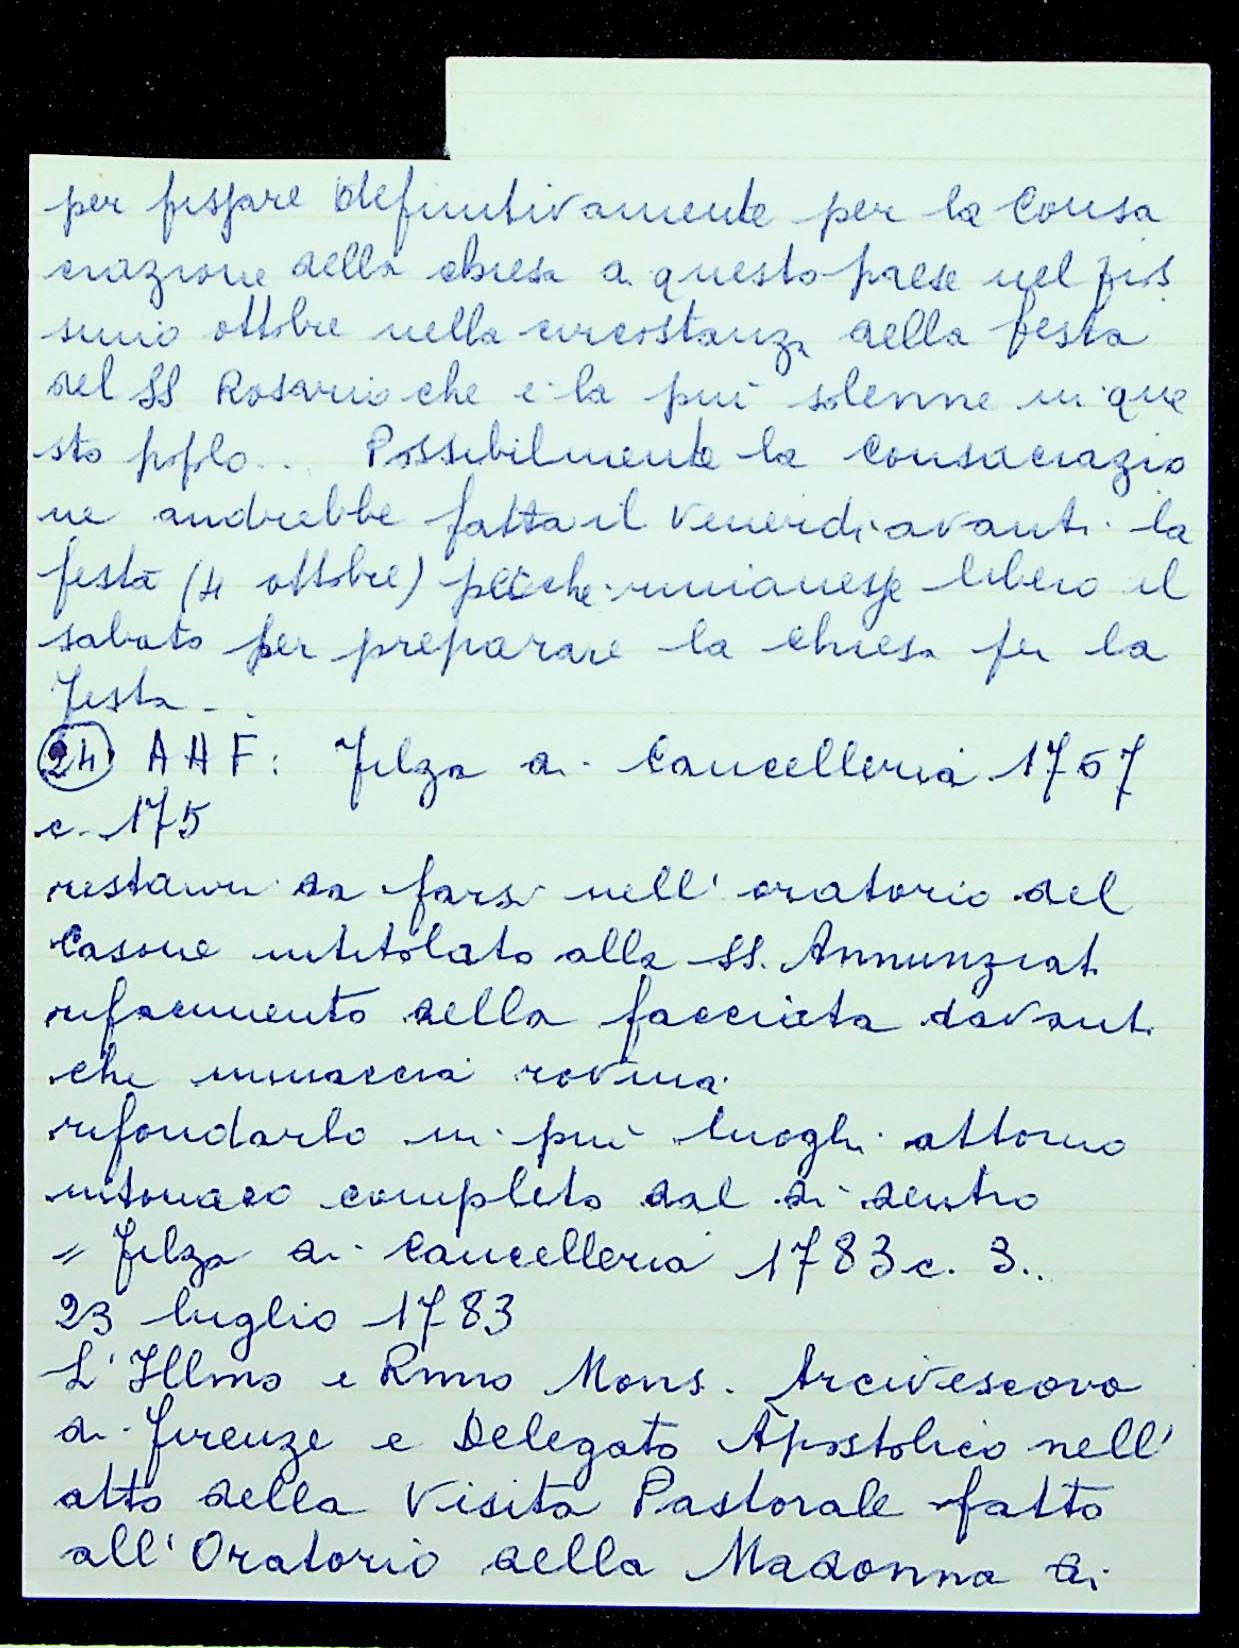 per fissare definitivamente per la Consa
crazione della chiesa a questo paese nel pros
simo ottobre nella circostanza della festa
del SS Rosario che è la più solenne in que
sto popolo... Possibilmente la consacrazio
ne andrebbe fatta il venerdi avanti la
festa (4 ottobre) perché rimanesse libero il
sabato per preparare la chiesa per la
festa...
24 AAF: Filza di Cancelleria 1767
c. 175
restauri da farsi nell' oratorio del
Casone intitolato alla SS. Annunziat.
rifacimento della facciata davanti
che minaccia rovina.
rifondarlo in più luoghi attorno
intonaco completo dal di dentro
= Filza di Cancelleria 1783 c. 3..
23 luglio 1783
L'Illmo e Rmo Mons. Arcivescovo
di Firenze e Delegato Apostolico nell'
atto della Visita Pastorale fatto
all' Oratorio della Madonna di